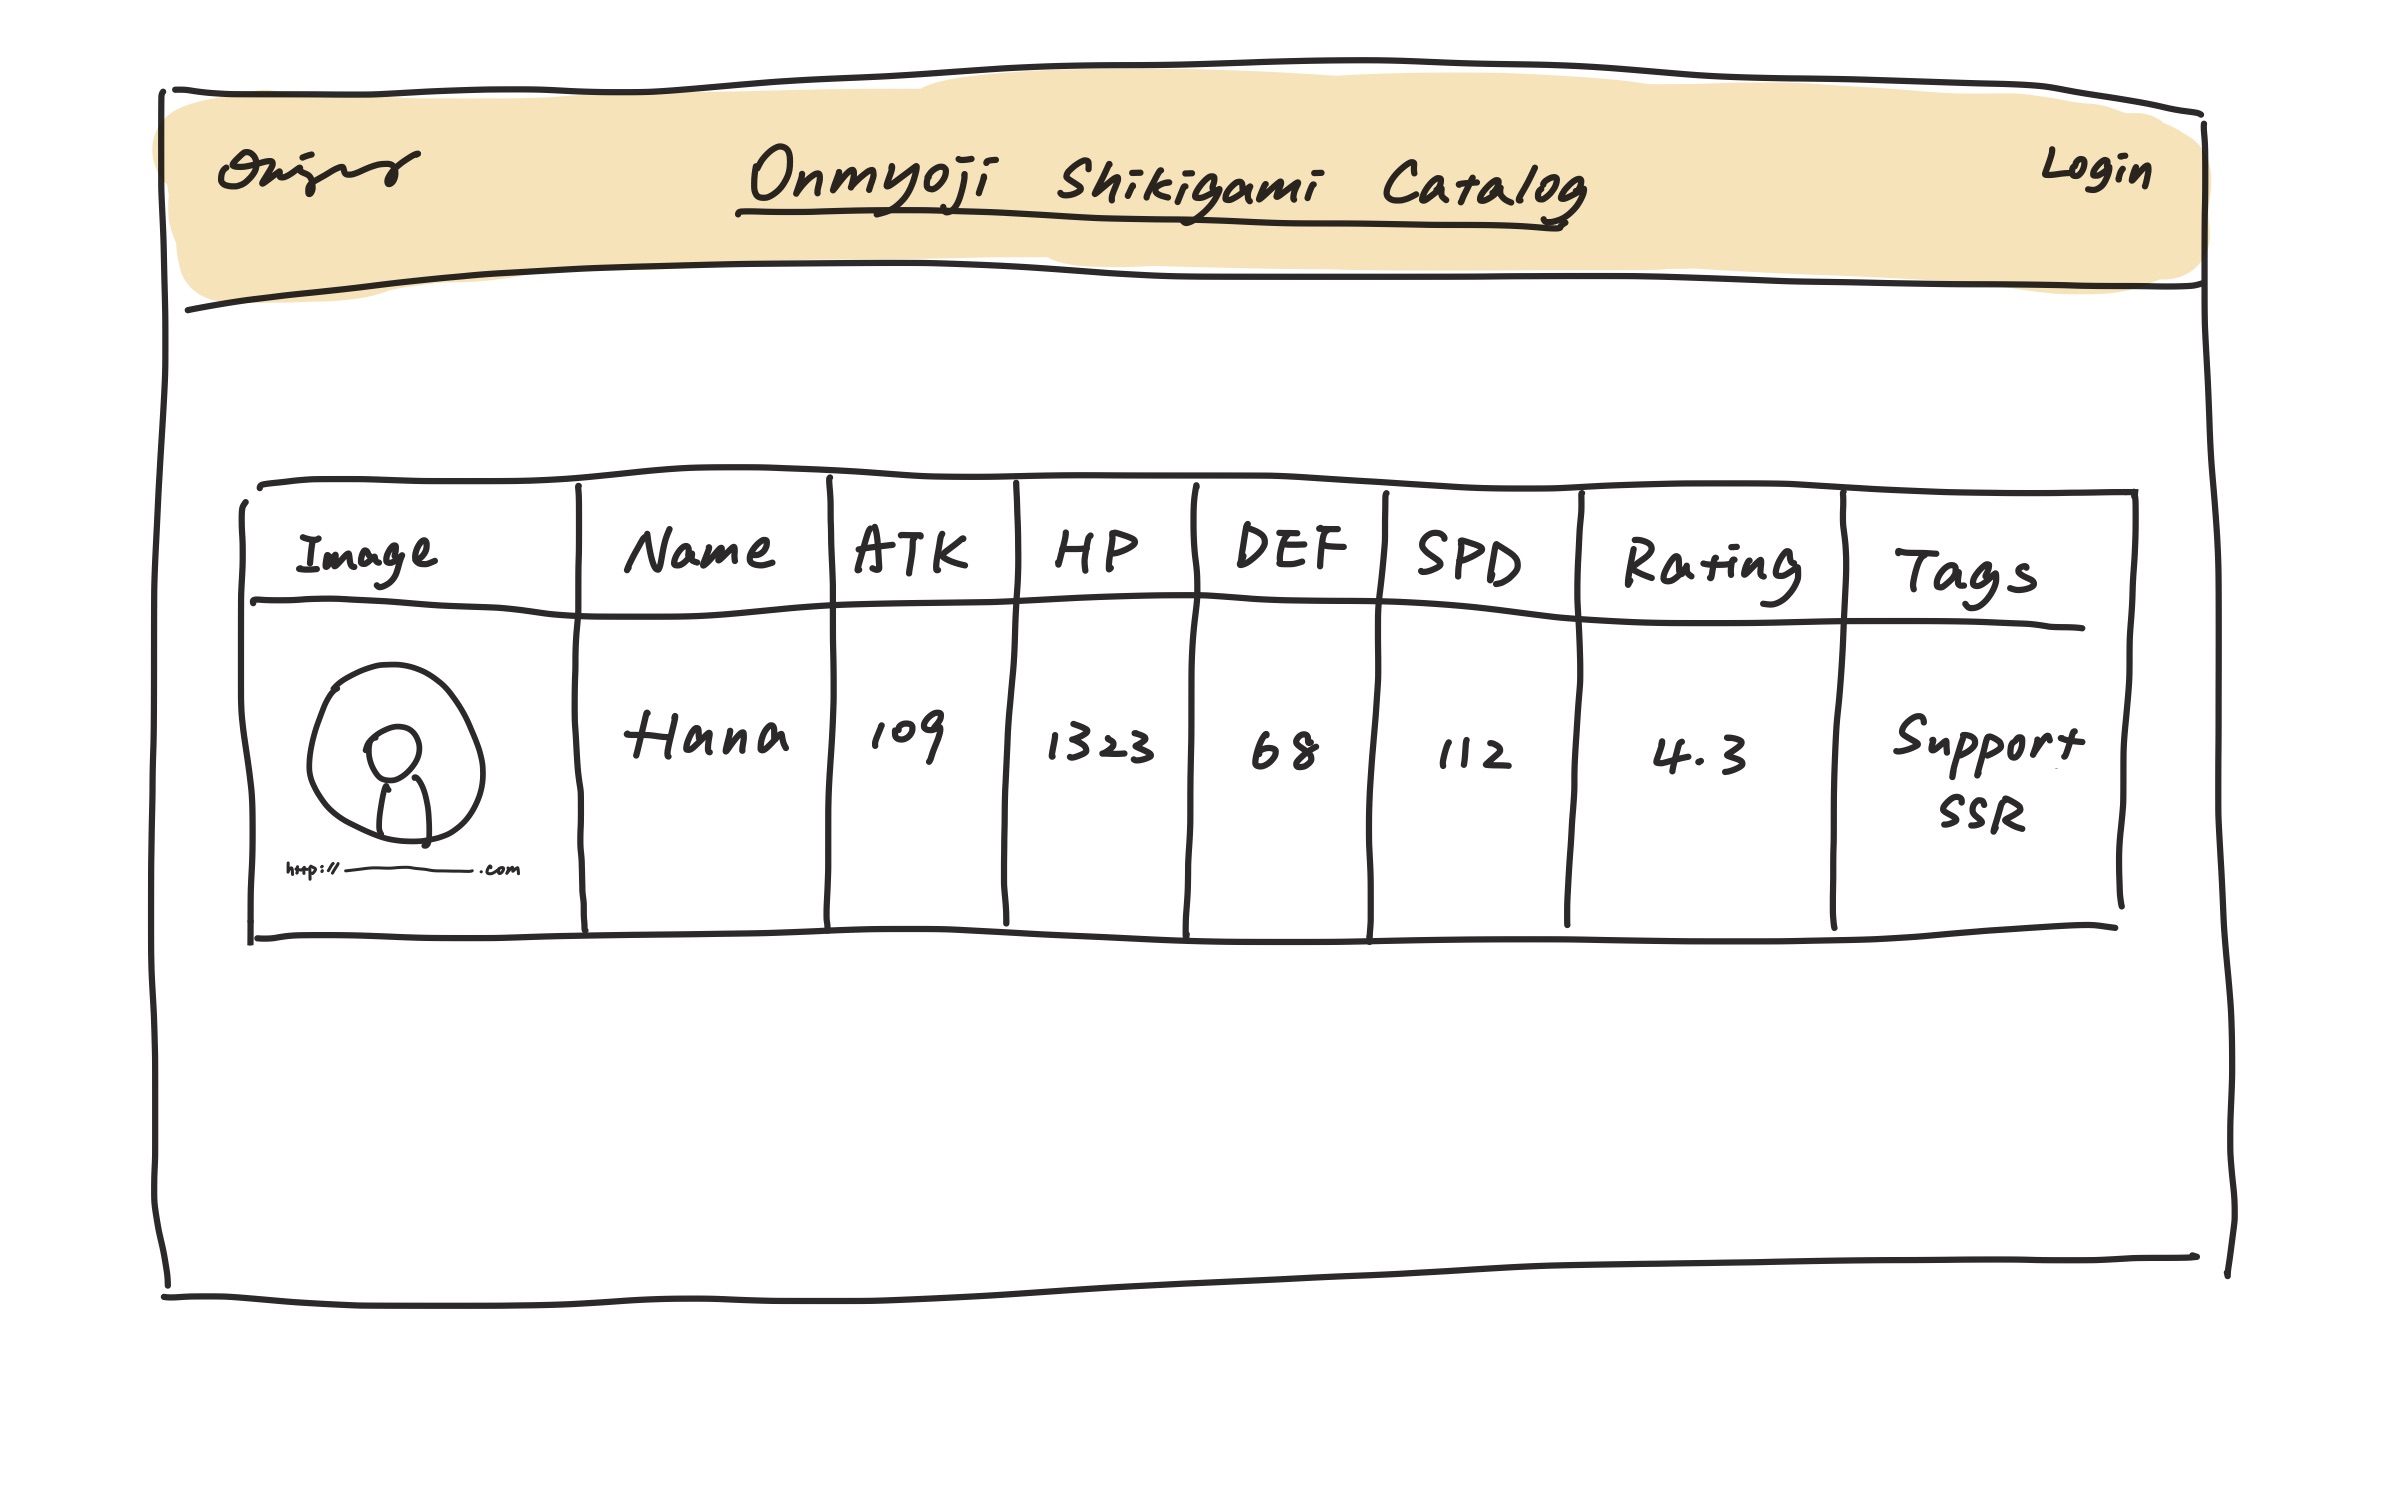 Onmyoji Shikigami Catalog
Login
Image Name ATK HP DEF SPD Rating Tags
Hana 109 1323 68 112 4.3 Support
SSR
http:// .com